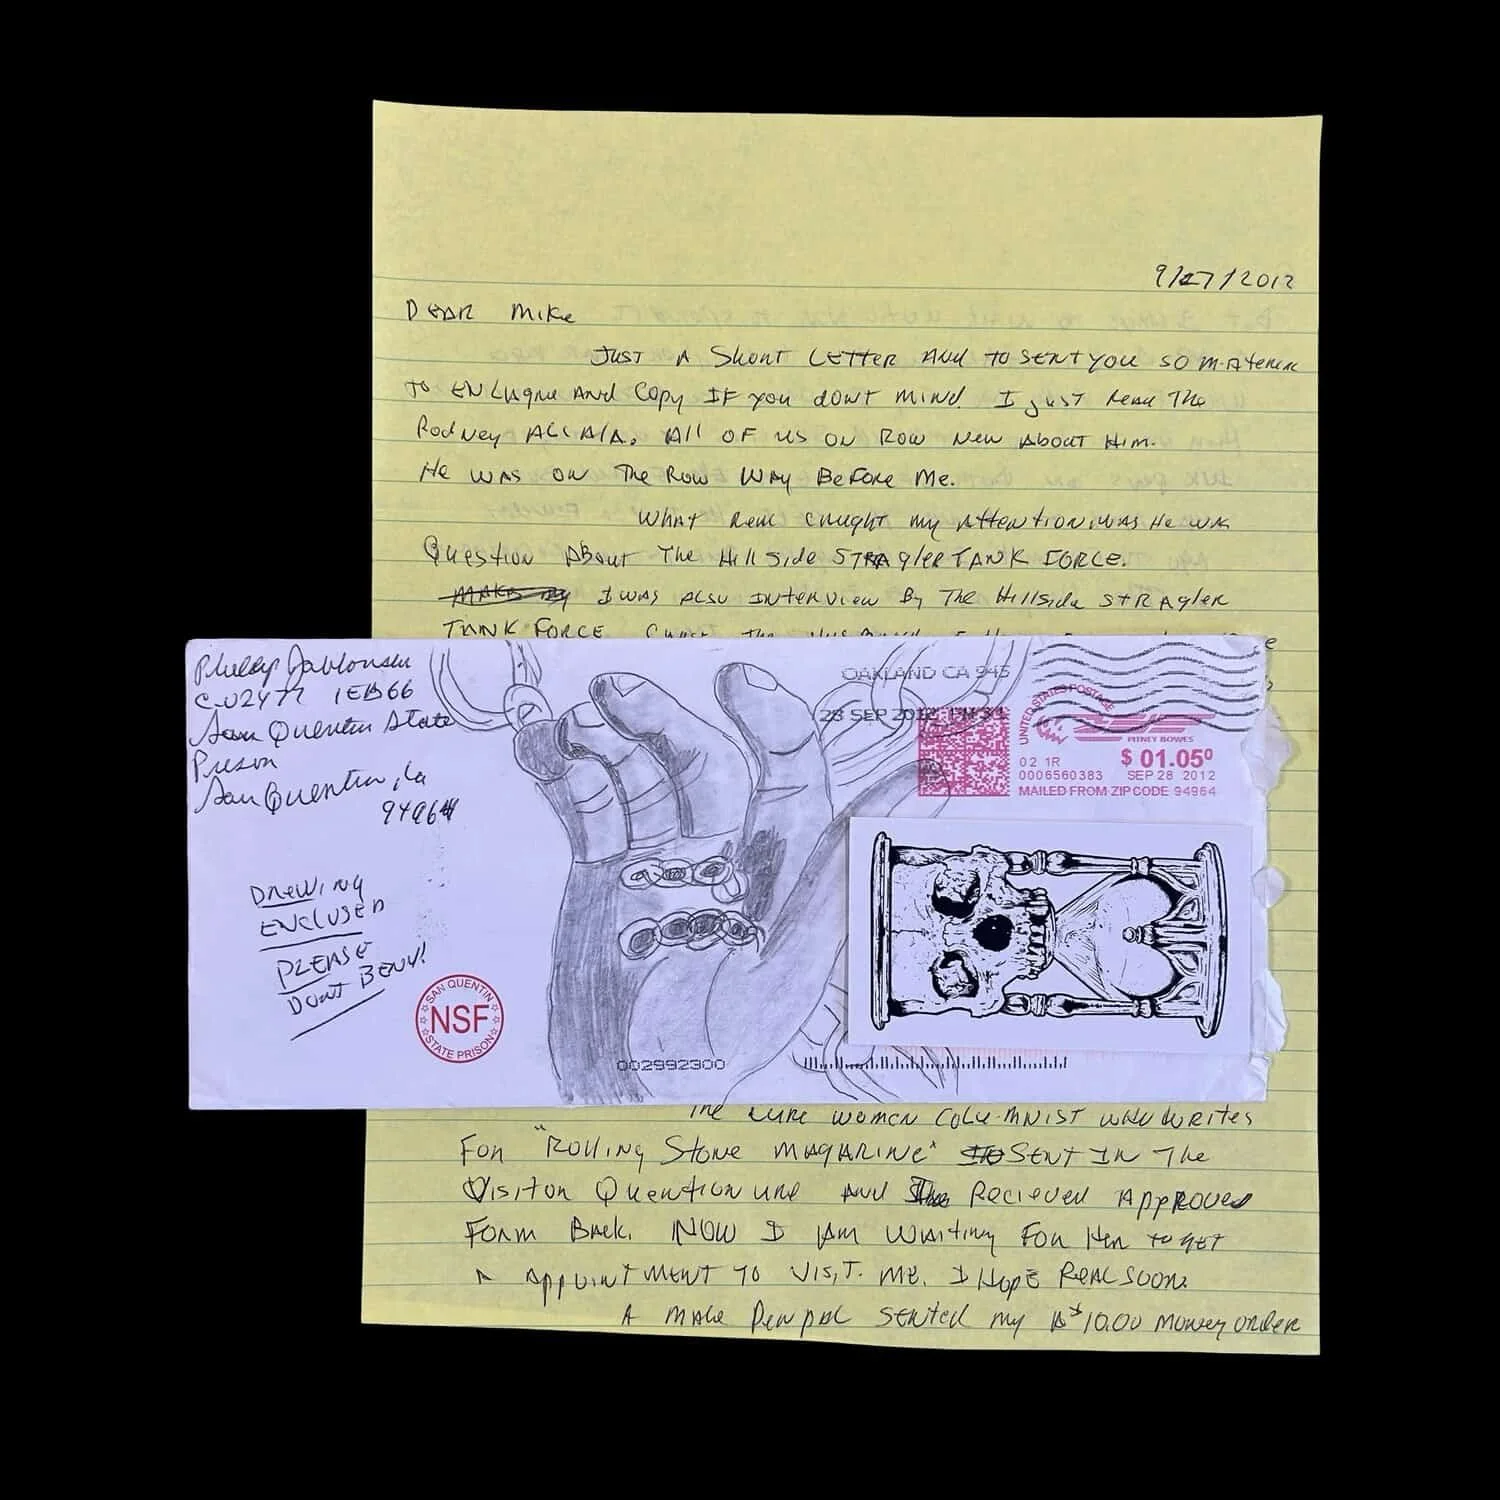 9/27/2012
DEAR Mike
JUST A Short LETTER AND TO SENT YOU SO MATERIAL
TO ENLARGE AND COPY IF YOU DONT MIND. I JUST READ THE
Rodney ALCALA. All OF US ON ROW NEW ABOUT HIM.
He WAS ON The ROW WAY BEFORE Me.
WHAT REAL CAUGHT my ATTENTION, WAS He WAS
QUESTION ABOUT The Hill Side STRAgler TANK FORCE.
I WAS ALSO INTERVIEW By The Hillside STRAgler
TANK FORCE
Phillip Jablonski
C-02477 1EB66
San Quentin State
Prison
San Quentin, Ca
94964
DRAWING
ENCLOSED
PLEASE
DONT BEND!
SAN QUENTIN
NSF
STATE PRISON
OAKLAND CA 945
28 SEP 2012 PM
UNITED STATES POSTAGE
PITNEY BOWES
02 1R $ 01.05⁰
0006560383 SEP 28 2012
MAILED FROM ZIP CODE 94964
002992300
The women COLUMNIST WHO WRITES
FOR "ROLLING STONE MAGAZINE" SENT IN The
VISITOR QUENTIONUNE AND RECIEVED APPROVED
FORM BACK. NOW I AM WAITING FOR HER TO GET
A APPOINTMENT TO VISIT ME. I HOPE REAL SOON.
A MALE PENPAL SENTED my $10.00 MONEY ORDER